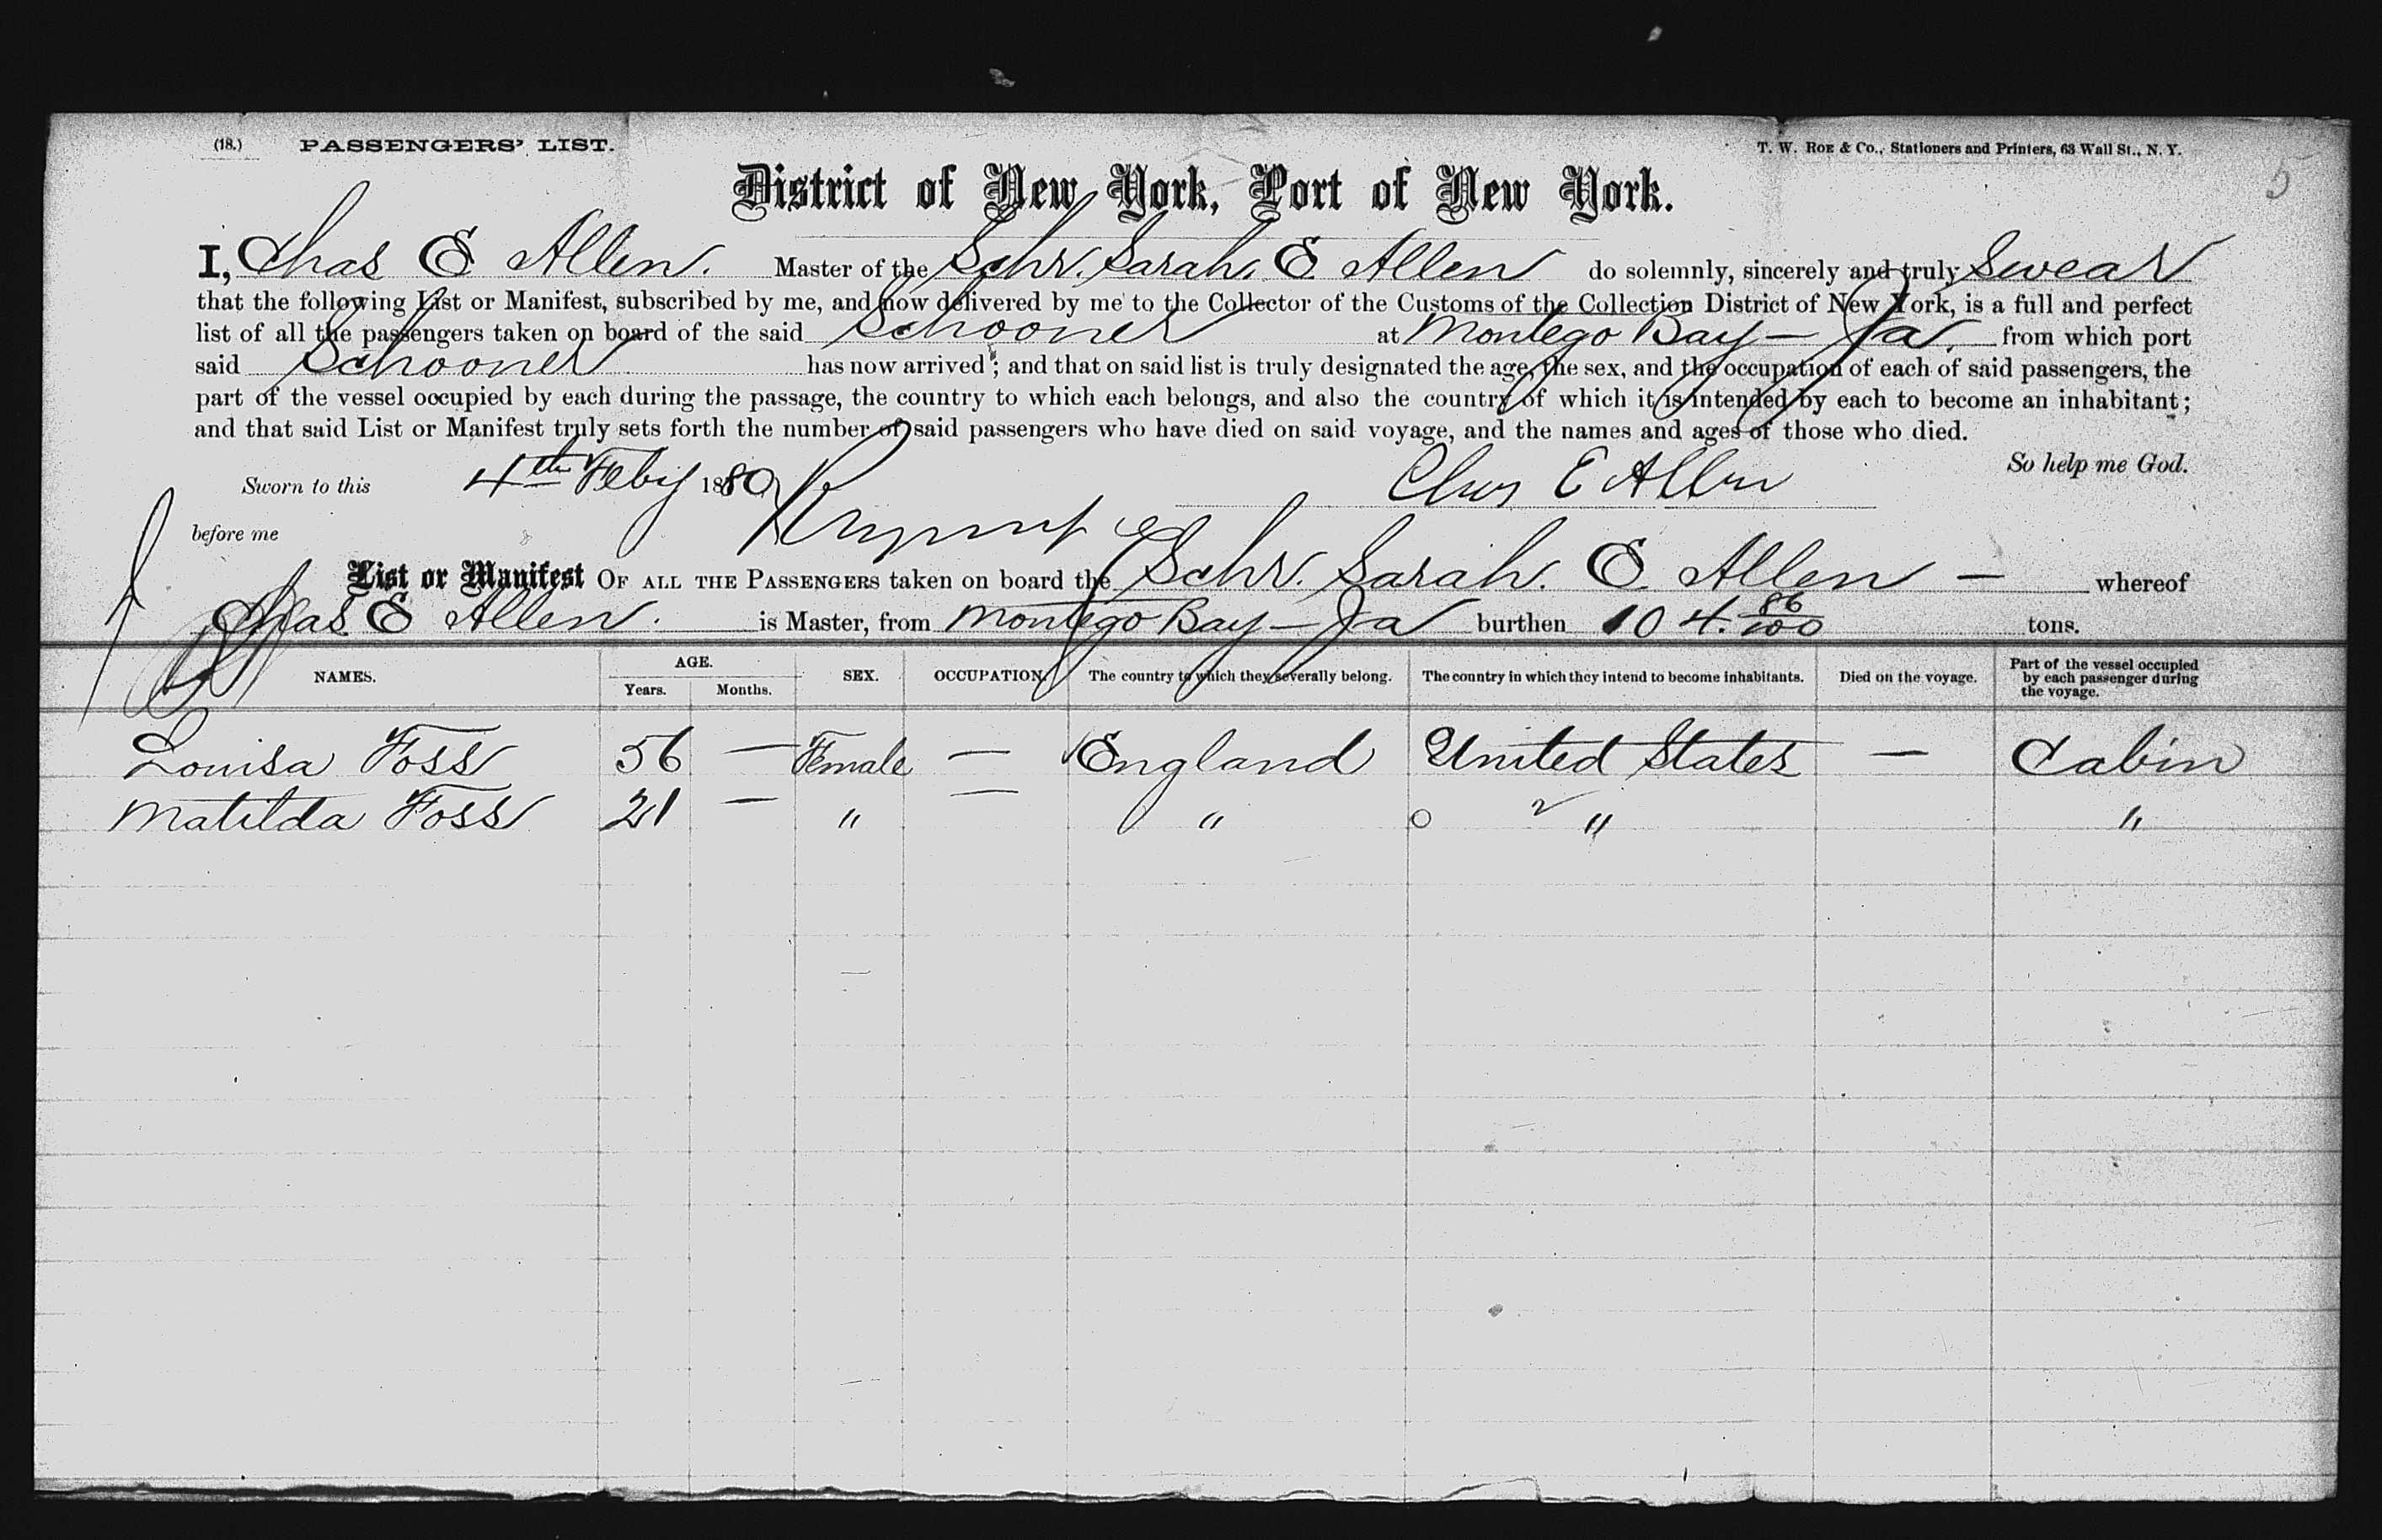 (18.) PASSENGERS' LIST. T. W. ROE & Co., Stationers and Printers, 63 Wall St., N. Y.
5
District of New York, Port of New York.
I, Chas E Allen. Master of the Schr. Sarah. E Allen do solemnly, sincerely and truly Swear
that the following List or Manifest, subscribed by me, and now delivered by me to the Collector of the Customs of the Collection District of New York, is a full and perfect
list of all the passengers taken on board of the said Schooner at Montego Bay — Ja. from which port
said Schooner has now arrived; and that on said list is truly designated the age, the sex, and the occupation of each of said passengers, the
part of the vessel occupied by each during the passage, the country to which each belongs, and also the country of which it is intended by each to become an inhabitant;
and that said List or Manifest truly sets forth the number of said passengers who have died on said voyage, and the names and ages of those who died.
So help me God.
Sworn to this 4th Feby 1880 Chas E Allen
before me
List or Manifest OF ALL THE PASSENGERS taken on board the Schr. Sarah. E Allen — whereof
Chas E Allen. is Master, from Montego Bay — Ja burthen 104. 86/100 tons.
NAMES. AGE. Years. Months. SEX. OCCUPATION. The country to which they severally belong. The country in which they intend to become inhabitants. Died on the voyage. Part of the vessel occupied by each passenger during the voyage.
Louisa Foss 56 — Female — England United States — Cabin
Matilda Foss 21 — " — " " "